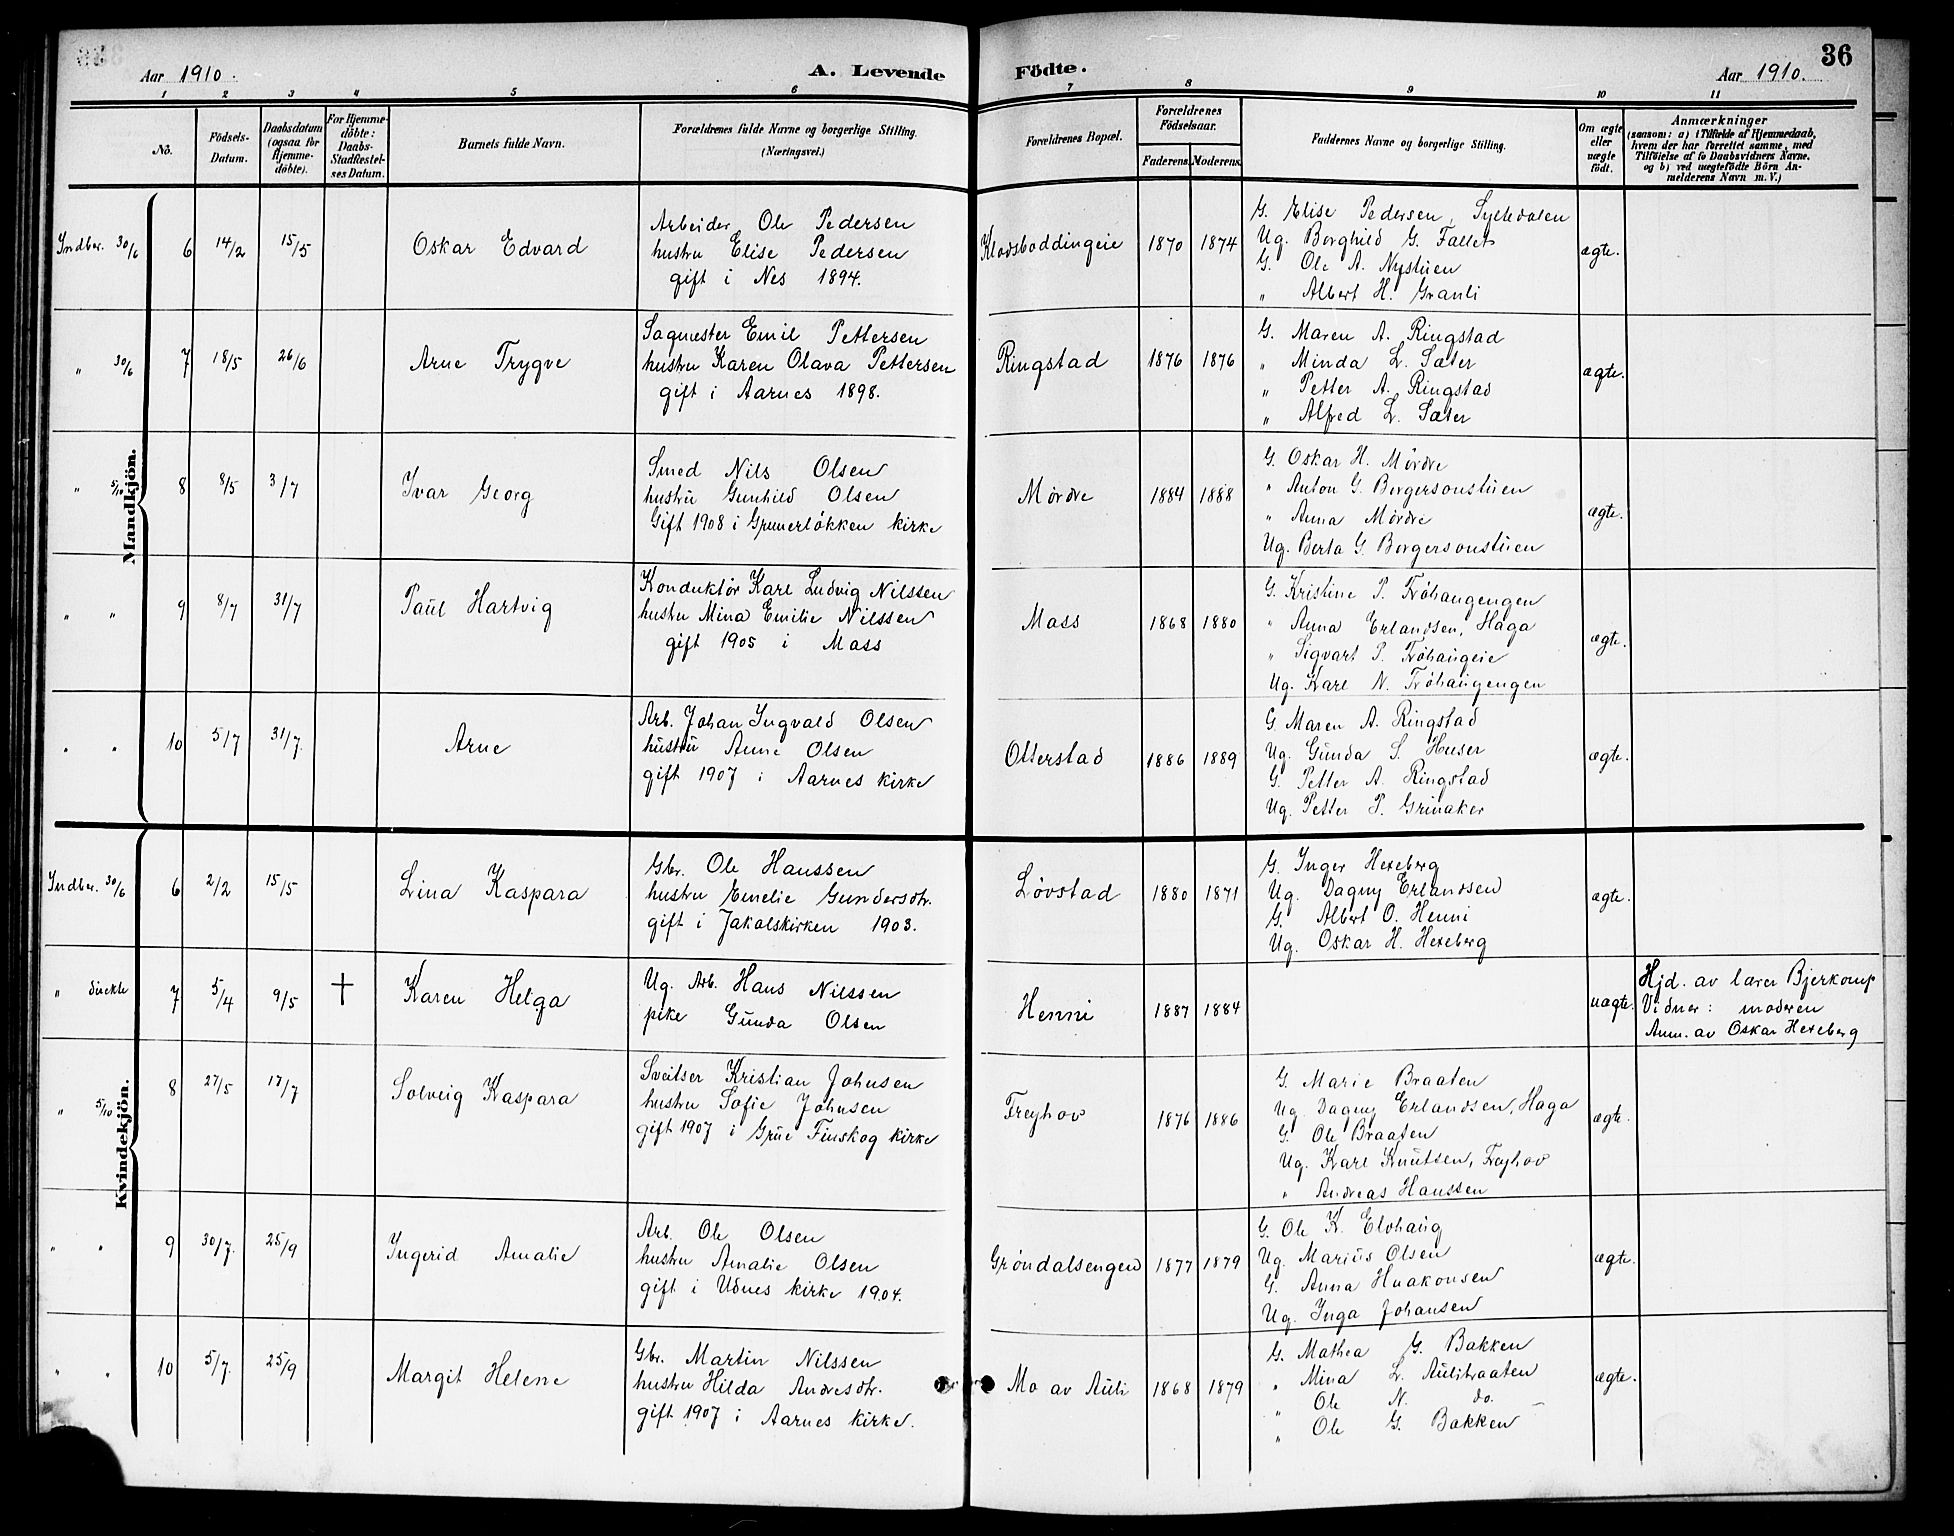 36
Aar 1910.
A. Levende
Födte.
Aar 1910.
1 2 3 4 5 6 7 8 9 10 11
No.
Födsels-Datum.
Daabsdatum (ogsaa for Hjemme-döbte).
For Hjemme-döbte: Daabs-Stadfæstel-ses Datum.
Barnets fulde Navn.
Forældrenes fulde Navne og borgerlige Stilling. (Næringsvei.)
Forældrenes Bopæl.
Forældrenes Födselsaar.
Faderens. Moderens.
Faddernes Navne og borgerlige Stilling.
Om ægte eller uægte födt.
Anmærkninger
(saasom: a) i Tilfælde af Hjemmedaab,
hvem der har forrettet samme, med
Tilföielse af to Daabsvidners Navne,
og b) ved uægtefödte Börn An-
melderens Navn m. V.)
Mandkjön.
Indber. 30/6 6 14/2 15/5 Oskar Edvard
Arbeider Ole Pedersen
hustru Elise Pedersen
gift i Nes 1894.
Klodsboddingeie 1870 1874
G. Elise Pedersen, Syledalen
Ug. Borghild G. Fallet
G. Ole A. Nystuen
" Albert H. Granli
ægte.
" 30/6 7 18/5 26/6 Arne Trygve
Sagmester Emil Pettersen
hustru Karen Olava Pettersen
gift i Aarnes 1898.
Ringstad 1876 1876
G. Maren A. Ringstad
" Minda L. Sæter
" Petter A. Ringstad
" Alfred L. Sæter
ægte.
" 5/10 8 8/5 3/7 Ivar Georg
Smed Nils Olsen
hustru Gunhild Olsen
Gift 1908 i Grunerløkken kirke
Mørdre 1884 1888
G. Oskar H. Mørdre
" Anton G. Borgersonstuen
" Anna Mørdre
Ug. Berta G. Borgersonstuen
ægte.
" " 9 8/7 31/7 Paul Hartvig
Konduktør Karl Ludvig Nilssen
hustru Mina Emilie Nilssen
gift 1905 i Mass
Mass 1868 1880
G. Kristine P. Frøhaugengen
" Anna Erlandsen, Haga
" Sigvart P. Frøhaugeie
Ug. Karl N. Frøhaugengen
ægte.
" " 10 5/7 31/7. Arne
Arb. Johan Ingvald Olsen
hustru Anne Olsen
gift 1907 i Aarnes kirke
Otterstad 1886 1889
G. Maren A. Ringstad
Ug. Gunda S. Huser
G. Petter A. Ringstad
Ug. Petter P. Grinaker
ægte.
Kvindekjön.
Indber. 30/6 6 2/2 15/5 Lina Kaspara
Gbr. Ole Hanssen
hustru Emelie Gundersdtr.
gift i Jakobskirken 1903.
Løvstad 1880 1871
G. Inger Hexeberg
Ug. Dagny Erlandsen
G. Albert O. Henni
Ug. Oskar H. Hexeberg
ægte.
" direkte 7 5/4 9/5 † Karen Helga
Ug. Arb. Hans Nilssen
pike Gunda Olsen
Henni 1887 1884
uægte.
Hjd. av lærer Bjerkomp
Vidner: moderen
Anm. av Oskar Hexeberg
" 5/10 8 27/5 17/7 Solveig Kaspara
Sveitser Kristian Johnsen
hustru Sofie Johnsen
gift 1907 i Grue Finskog kirke
Freyhov 1876 1886
G. Marie Braaten
Ug. Dagny Erlandsen, Haga
G. Ole Braaten
Ug. Karl Knutsen, Freyhov
" Andreas Hanssen
ægte.
" " 9 30/7. 25/9 Ingerid Amalie
Arb. Ole Olsen
hustru Amalie Olsen
gift i Udnes kirke 1904.
Grøndalsengen 1877 1879
G. Ole K. Elvhaug
Ug. Marius Olsen
G. Anna Haakonsen
Ug. Inga Johansen
ægte.
" " 10 5/7. 25/9 Margit Helene
Gbr. Martin Nilssen
hustru Hilda Andresdtr.
gift 1907 i Aarnes kirke.
Mo av Auli 1868 1879
G. Mathea G. Bakken
" Mina L. Aulibraaten
" Ole N. do.
" Ole G. Bakken
ægte.